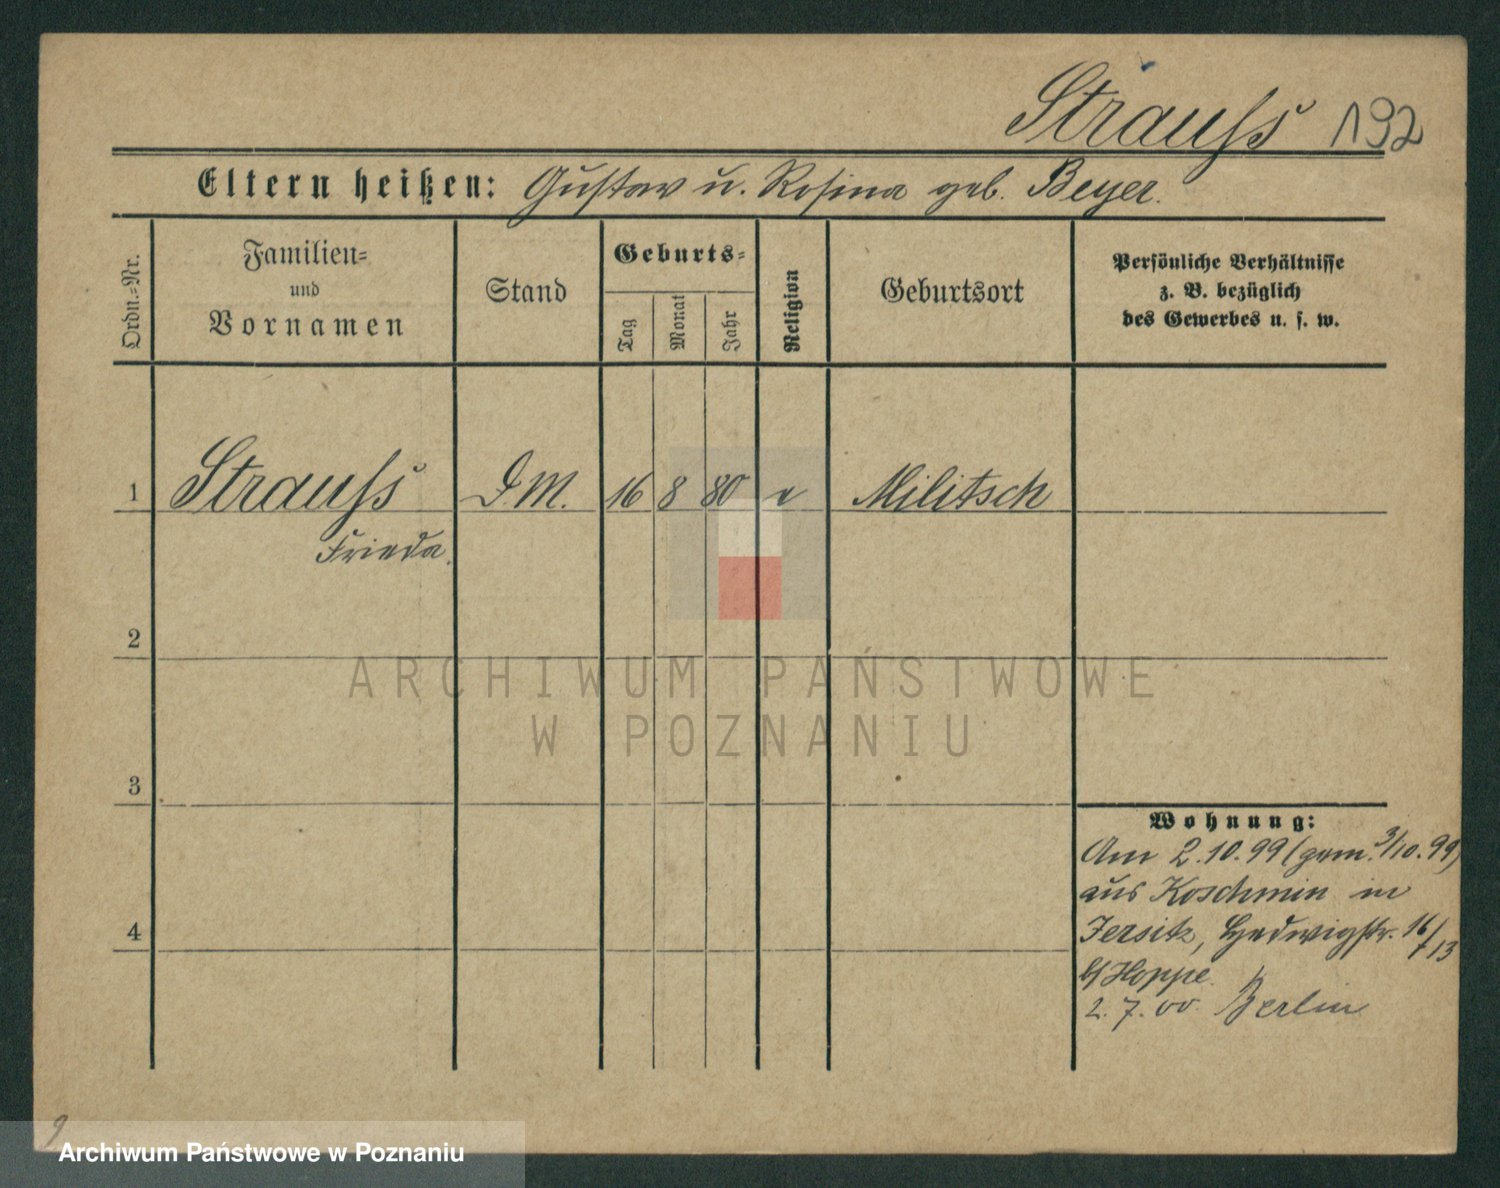 Strauss 192
Eltern heißen: Gustav u. Rosina geb. Beyer.
Ordn.-Nr.
Familien-
und
Vornamen
Stand
Geburts-
Tag
Monat
Jahr
Religion
Geburtsort
Persönliche Verhältnisse
z. B. bezüglich
des Gewerbes u. s. w.
1 Strauss D.M. 16 8 80 e Militsch
Frieda.
2
ARCHIWUM PAŃSTWOWE
W POZNANIU
3
Wohnung:
Am 2.10.99 (gem. 3/10.99)
aus Koschmin in
4
Jersitz, Hedwigstr. 16/13
b/Hoppe.
2.7.00 Berlin
9
Archiwum Państwowe w Poznaniu